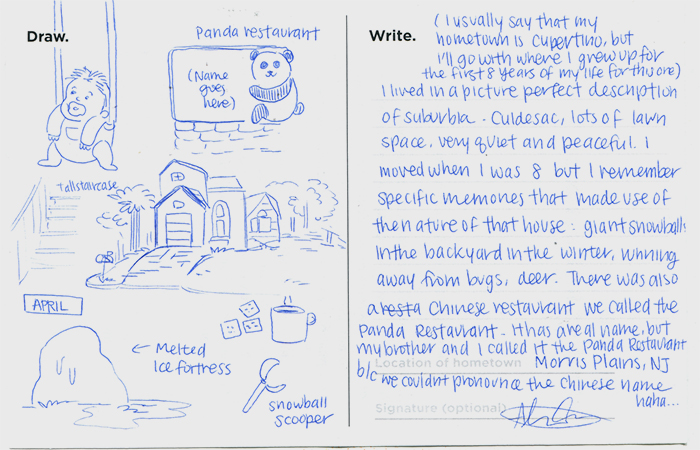 Draw.
Panda restaurant
(Name
goes
here)
Tall staircase
APRIL
← Melted
Ice fortress
snowball
scooper
Write.
(I usually say that my
hometown is Cupertino, but
I'll go with where I grew up for
the first 8 years of my life for this one)
I lived in a picture perfect description
of suburbia. Culdesac, lots of lawn
space, very quiet and peaceful. I
moved when I was 8 but I remember
specific memories that made use of
the nature of that house: giant snowballs
in the backyard in the winter, running
away from bugs, deer. There was also
a resta Chinese restaurant we called the
Panda Restaurant. It has a real name, but
my brother and I called it the Panda Restaurant
Location of hometown Morris Plains, NJ
b/c we couldnt pronounce the Chinese name
haha...
Signature (optional)